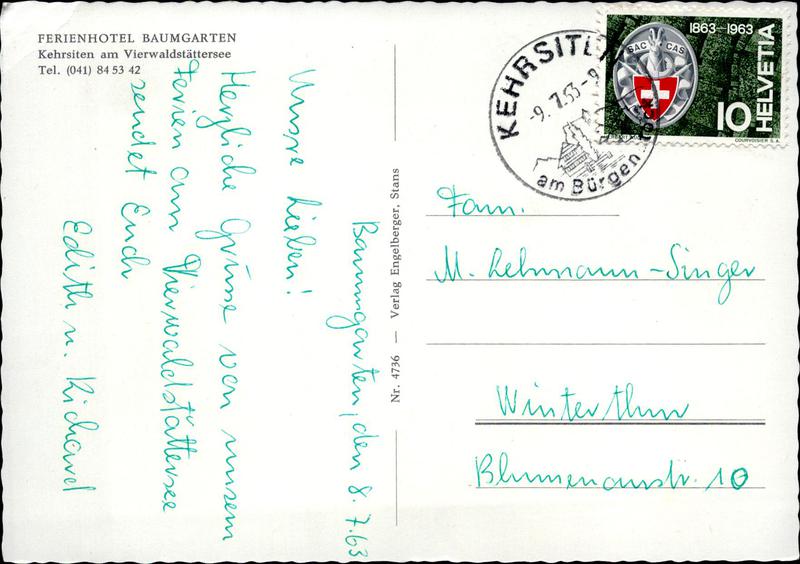 FERIENHOTEL BAUMGARTEN
Kehrsiten am Vierwaldstättersee
Tel. (041) 84 53 42
Baumgarten, den 8.7.63
Unsre Lieben!
Herzliche Grüsse von unsern
Ferien am Vierwaldstättersee
sendet Euch
Edith u. Richard
Nr. 4736 — Verlag Engelberger, Stans
KEHRSITEN
-9.7.63-9
am Bürgen
1863-1963
SAC CAS
10 HELVETIA
COURVOISIER S.A.
Fam.
M. Lehmann-Singer
Winterthur
Blumenaustr. 10